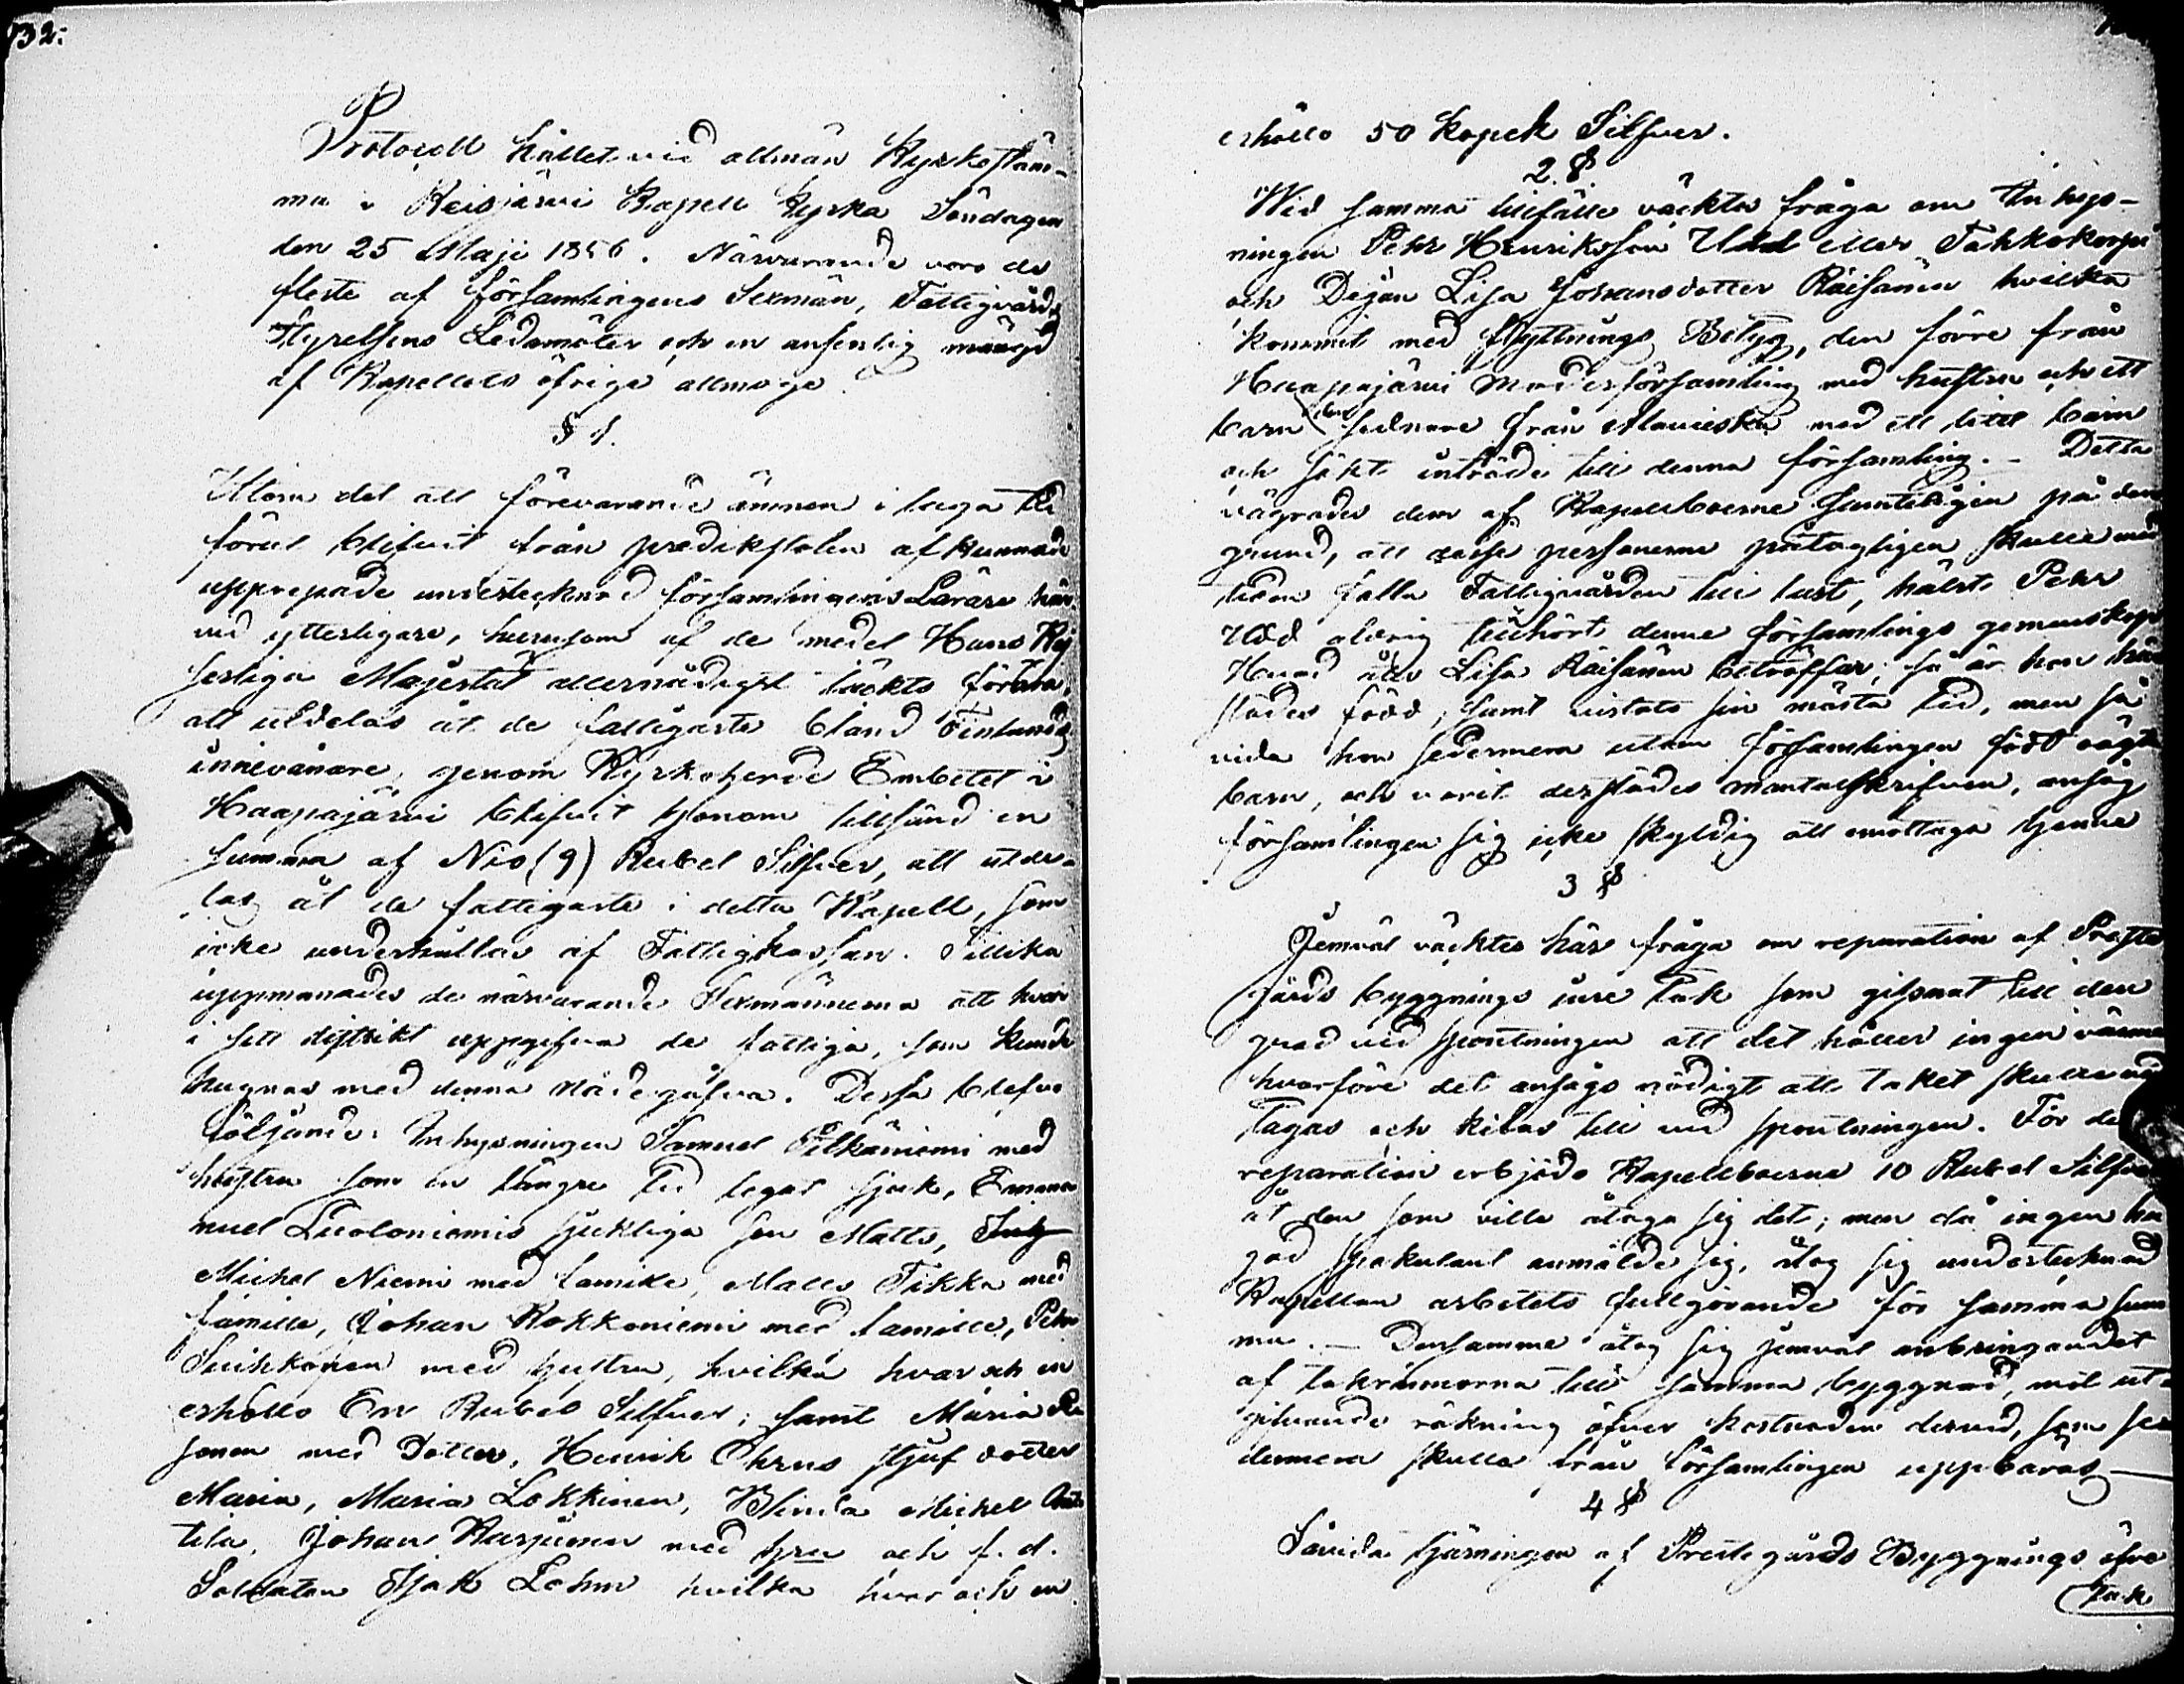 132:
Protocoll hållet vid allmän Kyrkostäm-
ma i Reisjärvi Kapell Kyrka Söndagen
den 25 Maji 1856. Närvarande voro de
fleste af församlingens Sexmän, Fattigvårds
Styrelsens Ledamöter och en ansenlig mängd
af Kapellets öfriga allmoge.
§ 1.
Utom det att förevarande ämnen i laga tid
förut blifvit från predikstolen afkunnade
upprepade undertecknad församlingens Lärare här
vid ytterligare, hurusom af de medel Hans Kej
serliga Majestät allernådigst täckts förära,
att utdelas åt de fattigaste bland Finlands
innevånare, genom Kyrkoherde Embetet i
Haapajärvi blifvit honom tillsänd en
summa af Nio (9) Rubel Silfver, att utde-
las åt de fattigaste i detta Kapell, som
icke underhållas af Fattigkassan. Tillika
uppmanades de närvarande Sexmännerna att hvar
i sitt distrikt uppgifva de fattiga, som kunde
hugnas med denna nådegåfva. Dessa blefvo
följande: Inhysningen Samuel Pitkäniemi med
hustru som en längre tid legat sjuk, Emma
nuel Luotoniemis sjukliga son Matts,
Michel Niemi med famille, Matts Tikka med
famille, Johan Kokkoniemi med famille, Pehr
Suihkonen med hustru, hvilka hvar och en
erhöllo En Rubel Silfver; samt Maria
sonen med Dotter, Henrik Ohrus stjuf dotter
Maria, Maria Lokkinen, Blinda Michel Ant
tila, Johan Karjunen med hru och f. d.
Soldaten Isak Lohm hvilka hvar och en
erhöllo 50 Kopek Silfver.
2. §
Wid samma tillfälle väcktes fråga om Inhys-
ningen Pehr Henriksson Udd eller Tahkokorpi
och Pigan Lisa Johansdotter Räisänen hvilka
kommit med flyttnings Betyg, den förre från
Haapajärvi Moderförsamling med hustru och ett
barn den sednare från Alavieska med ett litet barn
och sökt inträde till denna församling. - Detta
vägrades dem af Kapellboerne samteligen på den
grund, att desse personerne påtagligen skulle med
tiden falla Fattigvården till last, hälst Pehr
Udd aldrig tillhört denna församlings gemenskap
Hvad åter Lisa Räisänen beträffar, så är hon här
städes född, samt vistats sin mästa tid, men så
vida hon sedermera utom församlingen född oägta
barn, och varit derstädes mantalsskrifven, ansåg
församlingen sig icke skyldig att emottaga henne
3 §
Jemväl väcktes här fråga om reparation af Preste
gårds byggnings inre Tak som gistnat till den
grad vid spontningen att det håller ingen värme
hvarföre det ansågs nödigt att taket skulle ned
tagas och kilas till vid spontningen. För de
reparation erbjödo Kapellboerna 10 Rubel Silfver
åt den som ville åtaga sig det; men då ingen hu
gad spekulant anmälde sig, åtog sig undertecknad
Kapellan arbetets fullgörande för samma sum
ma. - Densamme åtog sig jemväl anbringandet
af takrännorna till samma byggnad, mot ut
gifvande räkning öfver kostnaden dervid, som se
dermera skulle från församlingen uppbäras
4 §
Såvida tjärningen af Prestegårds Byggnings öfre
Tak